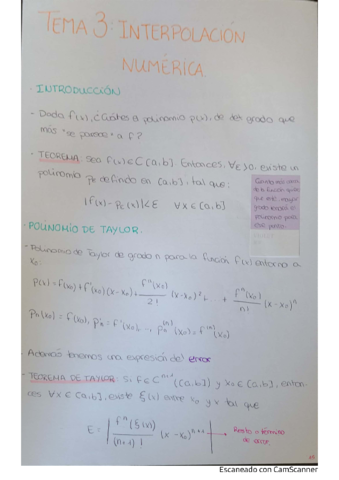 TEMA 3: INTERPOLACIÓN
NUMÉRICA.
· INTRODUCCIÓN
- Dada f(x), ¿Cuál es el polinomio p(x), de grado que
más "se parece" a f?
- TEOREMA: Sea f(x) ∈ C [a,b]. Entonces, ∀ε>0, existe un
polinomio pε definido en [a,b], tal que:
|f(x) - pε(x)| < ε ∀x ∈ [a,b]
· POLINOMIO DE TAYLOR.
- Polinomio de Taylor de grado n para la función f(x) entorno a
x₀:
p(x) = f(x₀) + f'(x₀)(x-x₀) + f''(x₀)/2! (x-x₀)² + fⁿ(x₀)/n! (x-x₀)ⁿ
pₙ(x₀) = f(x₀), p'ₙ = f'(x₀) ..., pₙ⁽ⁿ⁾(x₀) = f⁽ⁿ⁾(x₀)
- Además tenemos una expresión del error
- TEOREMA DE TAYLOR: Si f ∈ Cⁿ⁺¹([a,b]) y x₀ ∈ [a,b], enton-
ces ∀x ∈ [a,b], existe ξ(x) entre x₀ y x tal que
E = | fⁿ(ξ(x))/(n+1)! (x-x₀)ⁿ⁺¹ | → Resto o término
de error.
Escaneado con CamScanner